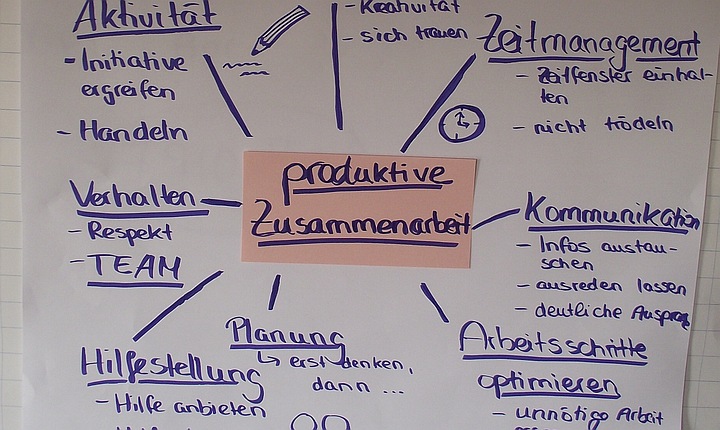 Aktivität
- Initiative
ergreifen
- Handeln
- Kreativität
- sich trauen
Zeitmanagement
- Zeitfenster einhal-
ten
- nicht trödeln
produktive
Zusammenarbeit
Verhalten
- Respekt
- TEAM
Kommunikation
- Infos austau-
schen
- ausreden lassen
- deutliche
Hilfestellung
- Hilfe anbieten
Planung
↳ erst denken,
dann ...
Arbeitsschritte
optimieren
- unnötige Arbeit